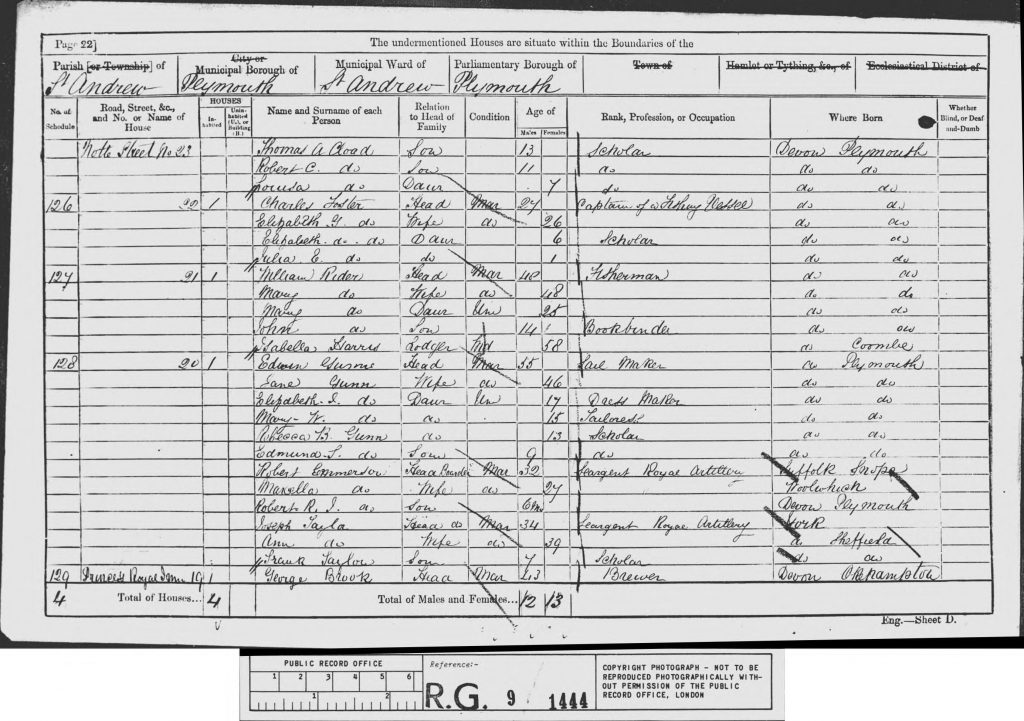 Page 22]
The undermentioned Houses are situate within the Boundaries of the
Parish [or Township] of
City or Municipal Borough of
Municipal Ward of
Parliamentary Borough of
Town of
Hamlet or Tything, &c., of
Ecclesiastical District of
St Andrew
Plymouth
St Andrew
Plymouth
No. of Schedule
Road, Street, &c., and No. or Name of House
HOUSES
Inhabited
Uninhabited (U.), or Building (B.)
Name and Surname of each Person
Relation to Head of Family
Condition
Age of
Males
Females
Rank, Profession, or Occupation
Where Born
Whether Blind, or Deaf-and-Dumb
Notte Street No 23 Thomas A Croad Son 13 Scholar Devon Plymouth
Robert C. do Son 11 do do do
Louisa do Daur 7 do do do
126 22 1 Charles Foster Head Mar 27 Captain of a Fishing Vessel do do
Elizabeth G. do Wife do 26 do do
Elizabeth do do Daur 6 Scholar do do
Julia E. do do 1 do do
127 21 1 William Rider Head Mar 40 Fisherman do do
Mary do Wife do 48 do do
Mary do Daur Un 25 do do
John do Son 14 Bookbinder do do
Isabella Harris Lodger Wd 58 do Coombe
128 20 1 Edwin Head Mar 55 Sail Maker do Plymouth
Jane Gunn Wife do 46 do do
Elizabeth I. do Daur Un 17 Dress Maker do do
Mary W. do do 15 Tailoress do do
Rebecca B. Gunn do 13 Scholar do do
Edmund S. do Son 9 do do do
Robert Emmerson Head Mar 32 Seargent Royal Artillery Suffolk Snape
do Wife do 27 Woolwhich
Robert R. J. do Son 6m Devon Plymouth
Joseph Tayla Head do Mar 34 Seargent Royal Artillery York
Ann do Wife do 39 do Sheffield
Frank Taylor Son 7 Scholar do do
129 Princess Royal Inn 19 1 George Brook Head Mar 43 Brewer Devon Okehampton
4 Total of Houses... 4 Total of Males and Females... 12 13
Eng.—Sheet D.
PUBLIC RECORD OFFICE
1 2 3 4 5 6
1 2
Reference:-
R.G. 9 1444
COPYRIGHT PHOTOGRAPH - NOT TO BE
REPRODUCED PHOTOGRAPHICALLY WITH-
OUT PERMISSION OF THE PUBLIC
RECORD OFFICE, LONDON